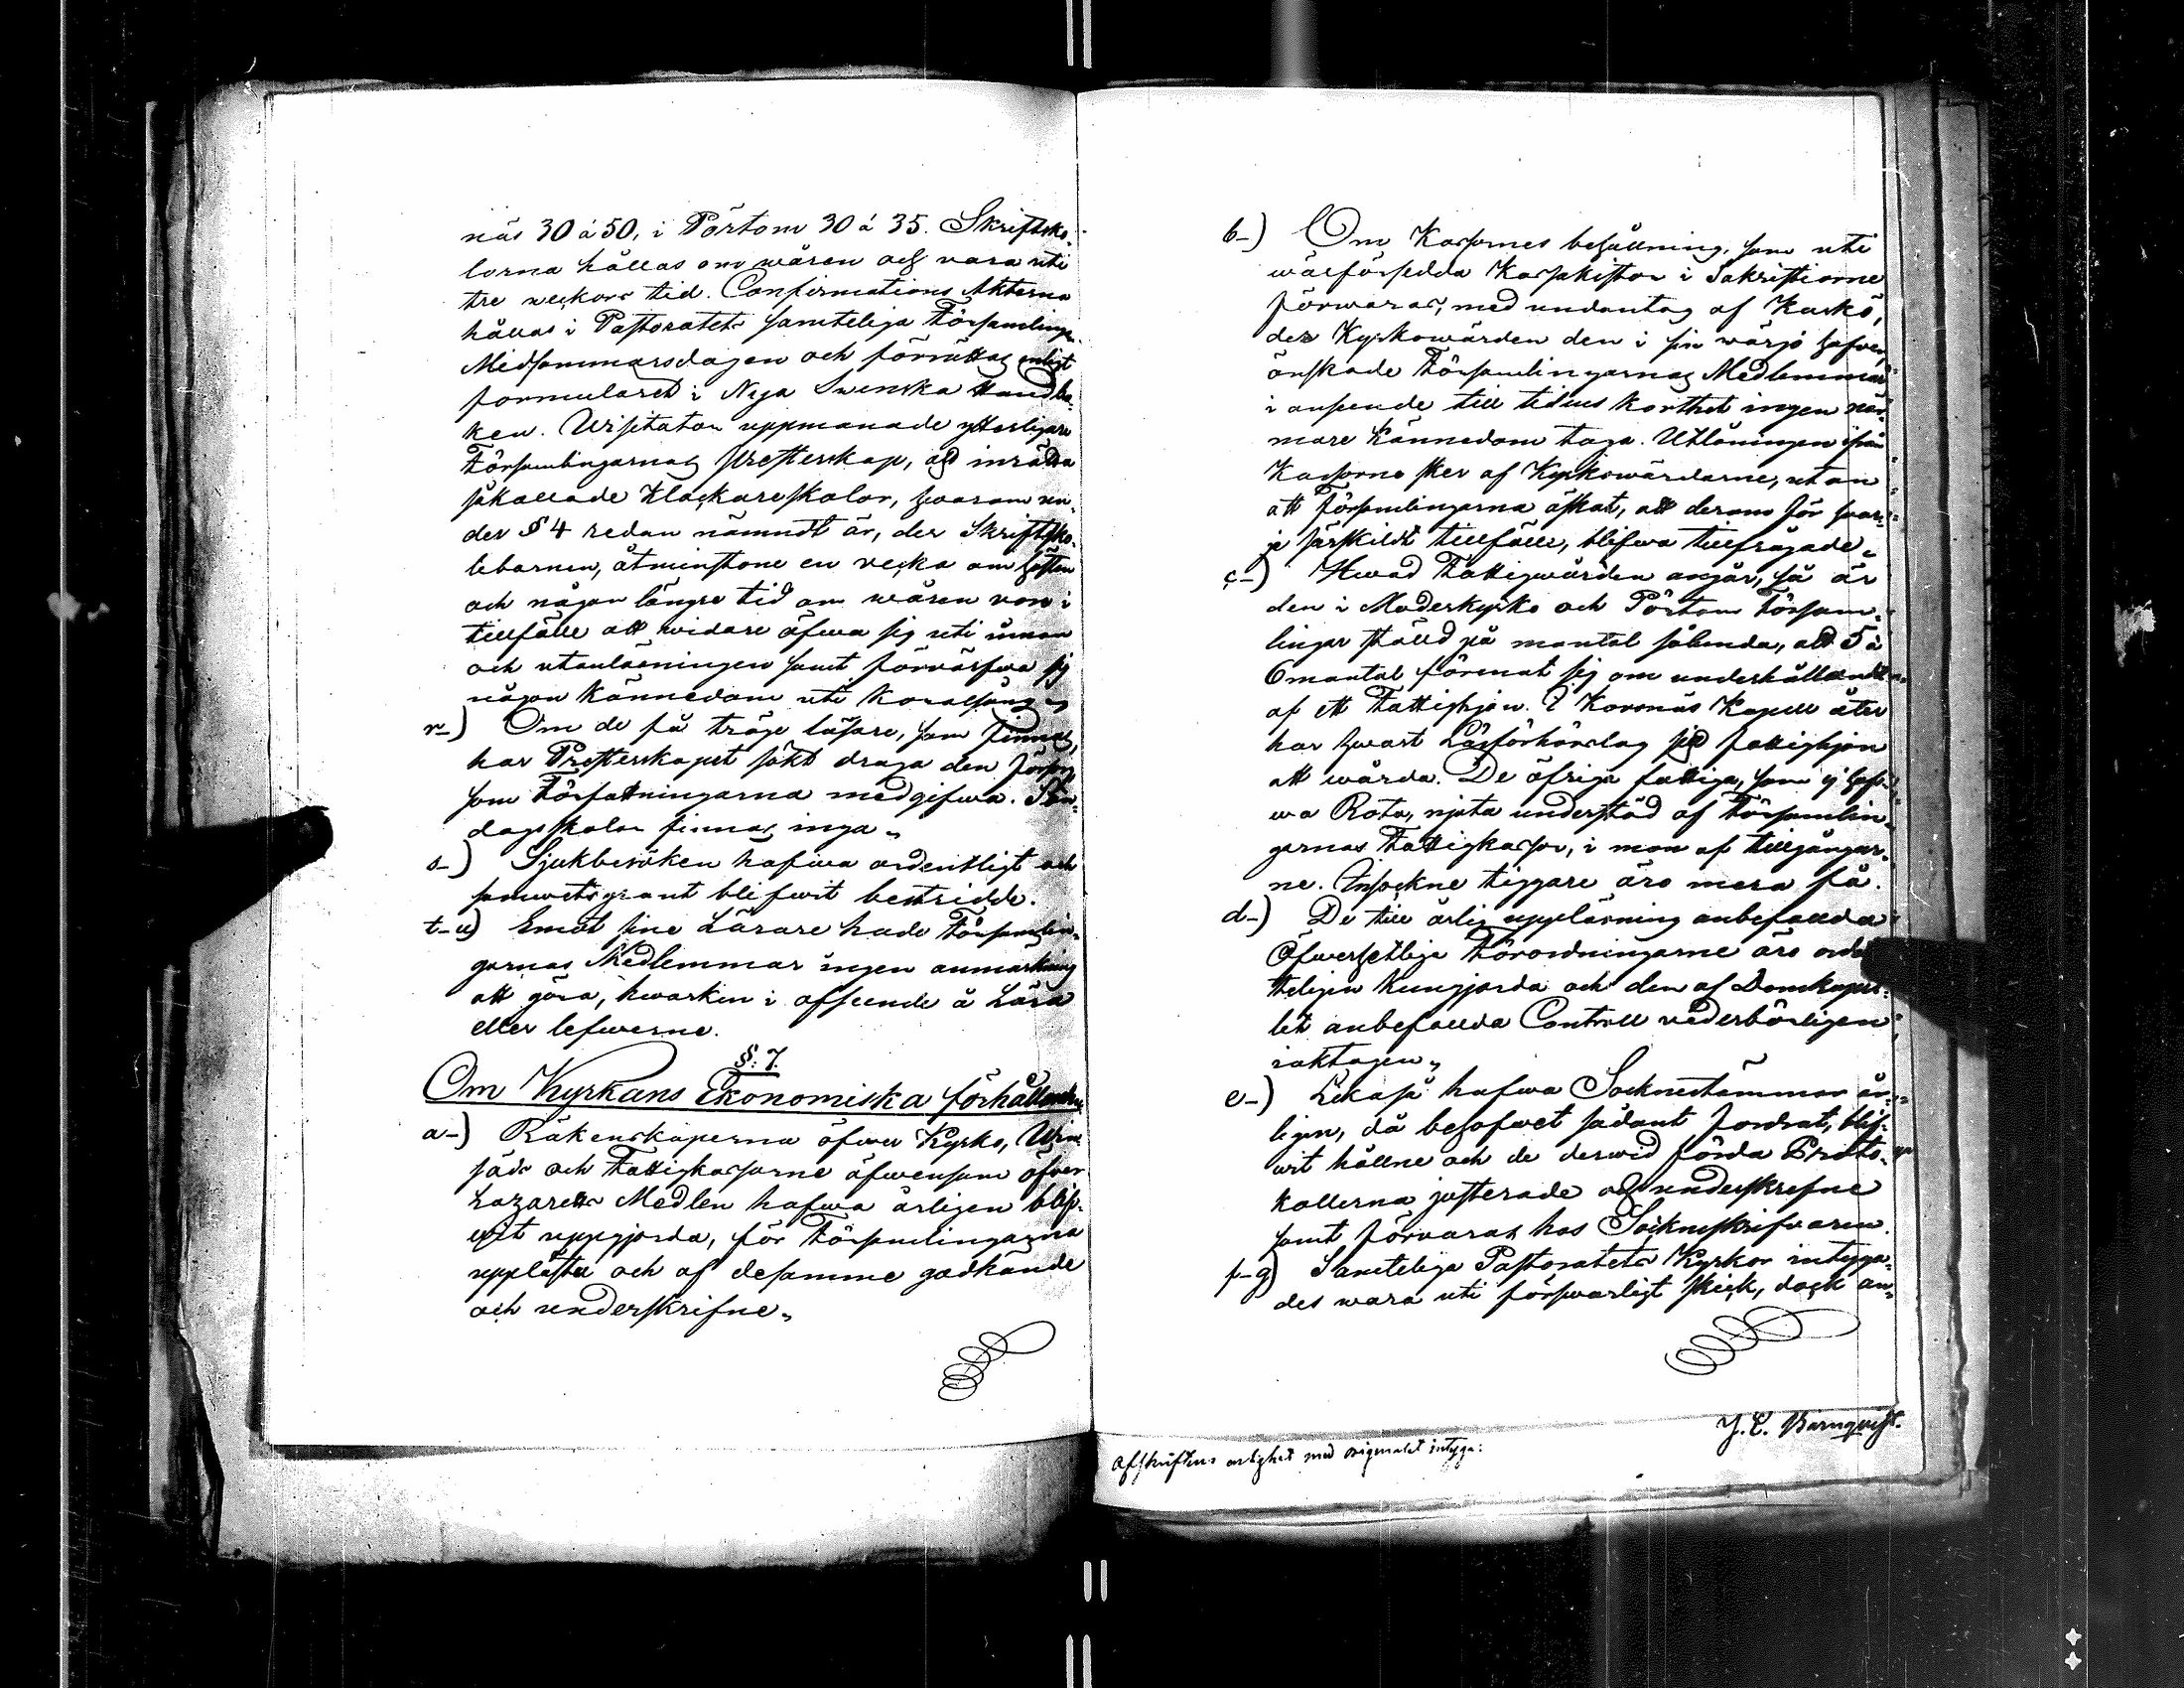 näs 30 à 50, i Pörtom 30 à 35. Skriftsko-
lorna hållas om wåren och vara uti
tre weckors tid. Confirmations Akterna
hållas i Pastoratets samteliga Församlingar
Midsommarsdagen och förrättas enligt
formularet i Nya Swenska Handbo-
ken. Visitator uppmanade ytterligare
Församlingarnas Presterskap, att inrätta
såkallade Klockareskolor, hwarom un-
der § 4 redan nämndt är, der Skriftsko-
lebarnen, åtminstone en vecka om hösten
och någon längre tid om wåren vore i
tillfälle att widare öfwa sig uti innan
och utanläsningen samt förvärfwa sig
någon kännedom uti Koralsång
r-) Om de få tröge läsare, som finnas,
har Presterskapet sökt draga den försorg
som Författningarna medgifwa. Sön-
dagsskolor finnas inga.
s-) Sjukbesöken hafwa ordentligt och
samwetsgrant blifwit bestridde.
t-u) Emot sine Lärare hade Församlin-
garnas Medlemmar ingen anmärkning
att göra, hwarken i afseende å Lära
eller lefwerne.
§: 7.
Om Kyrkans Ekonomiska förhållanden
a-) Räkenskaperna öfwer Kyrko, Win
säds och Fattigkassorne äfwensom öfver
Lazaretts Medlen hafwa årligen blif-
wit uppgjorda, för Församlingarna
uppläste och af desamme godkände
och underskrifne.
b-) Om Kassornes behållning, som uti
wälförsedda Kassakistor i Sakristiorne
förwaras, med undantag af Kaskö,
der Kyrkowärden den i sin wärjo hafver,
önskade Församlingarnas Medlemmar
i anseende till tidens korthet ingen när-
mare kännedom taga. Utlåningen ifrån
Kassorne sker af Kyrkowärdarne, utan
att Församlingarna äskat, att derom för hvar-
je särskildt tillfälle, blifwa tillfrågade.
c-) Hwad Fattigwården angår, så är
den i Moderkyrko och Pörtom Försam-
lingar ställd på mantal sålunda, att 5 à
6 mantal förenat sig om underhållandet
af ett Fattighjon. I Korsnäs Kapell åter
har hwart Läsförhörslag sitt fattighjon
att wårda. De öfriga fattiga, som ej haf-
wa Rota, njuta understöd af Församlin-
garnas Fattigkassor, i mon af tillgångar-
ne. Insockne tiggare äro mera få.
d-) De till årlig uppläsning anbefallda
Öfwerhetliga Förordningarne äro orden-
teligen kungjorda och den af Domkapit-
let anbefallda Controll vederbörligen
iakttagen.
e-) Likaså hafwa Socknestämmor år-
ligen, då behofwet sådant fordrat, blif-
wit hållne och de derwid förda Proto-
kollerna justerade och underskrefne
samt förvaras hos Sockneskrifvaren.
f-g) Samteliga Pastoratets Kyrkor intyga-
des wara uti förswarligt skick, dock an-
Afskriftens artighet med originalet intyga:
J. E. Barnqvist.